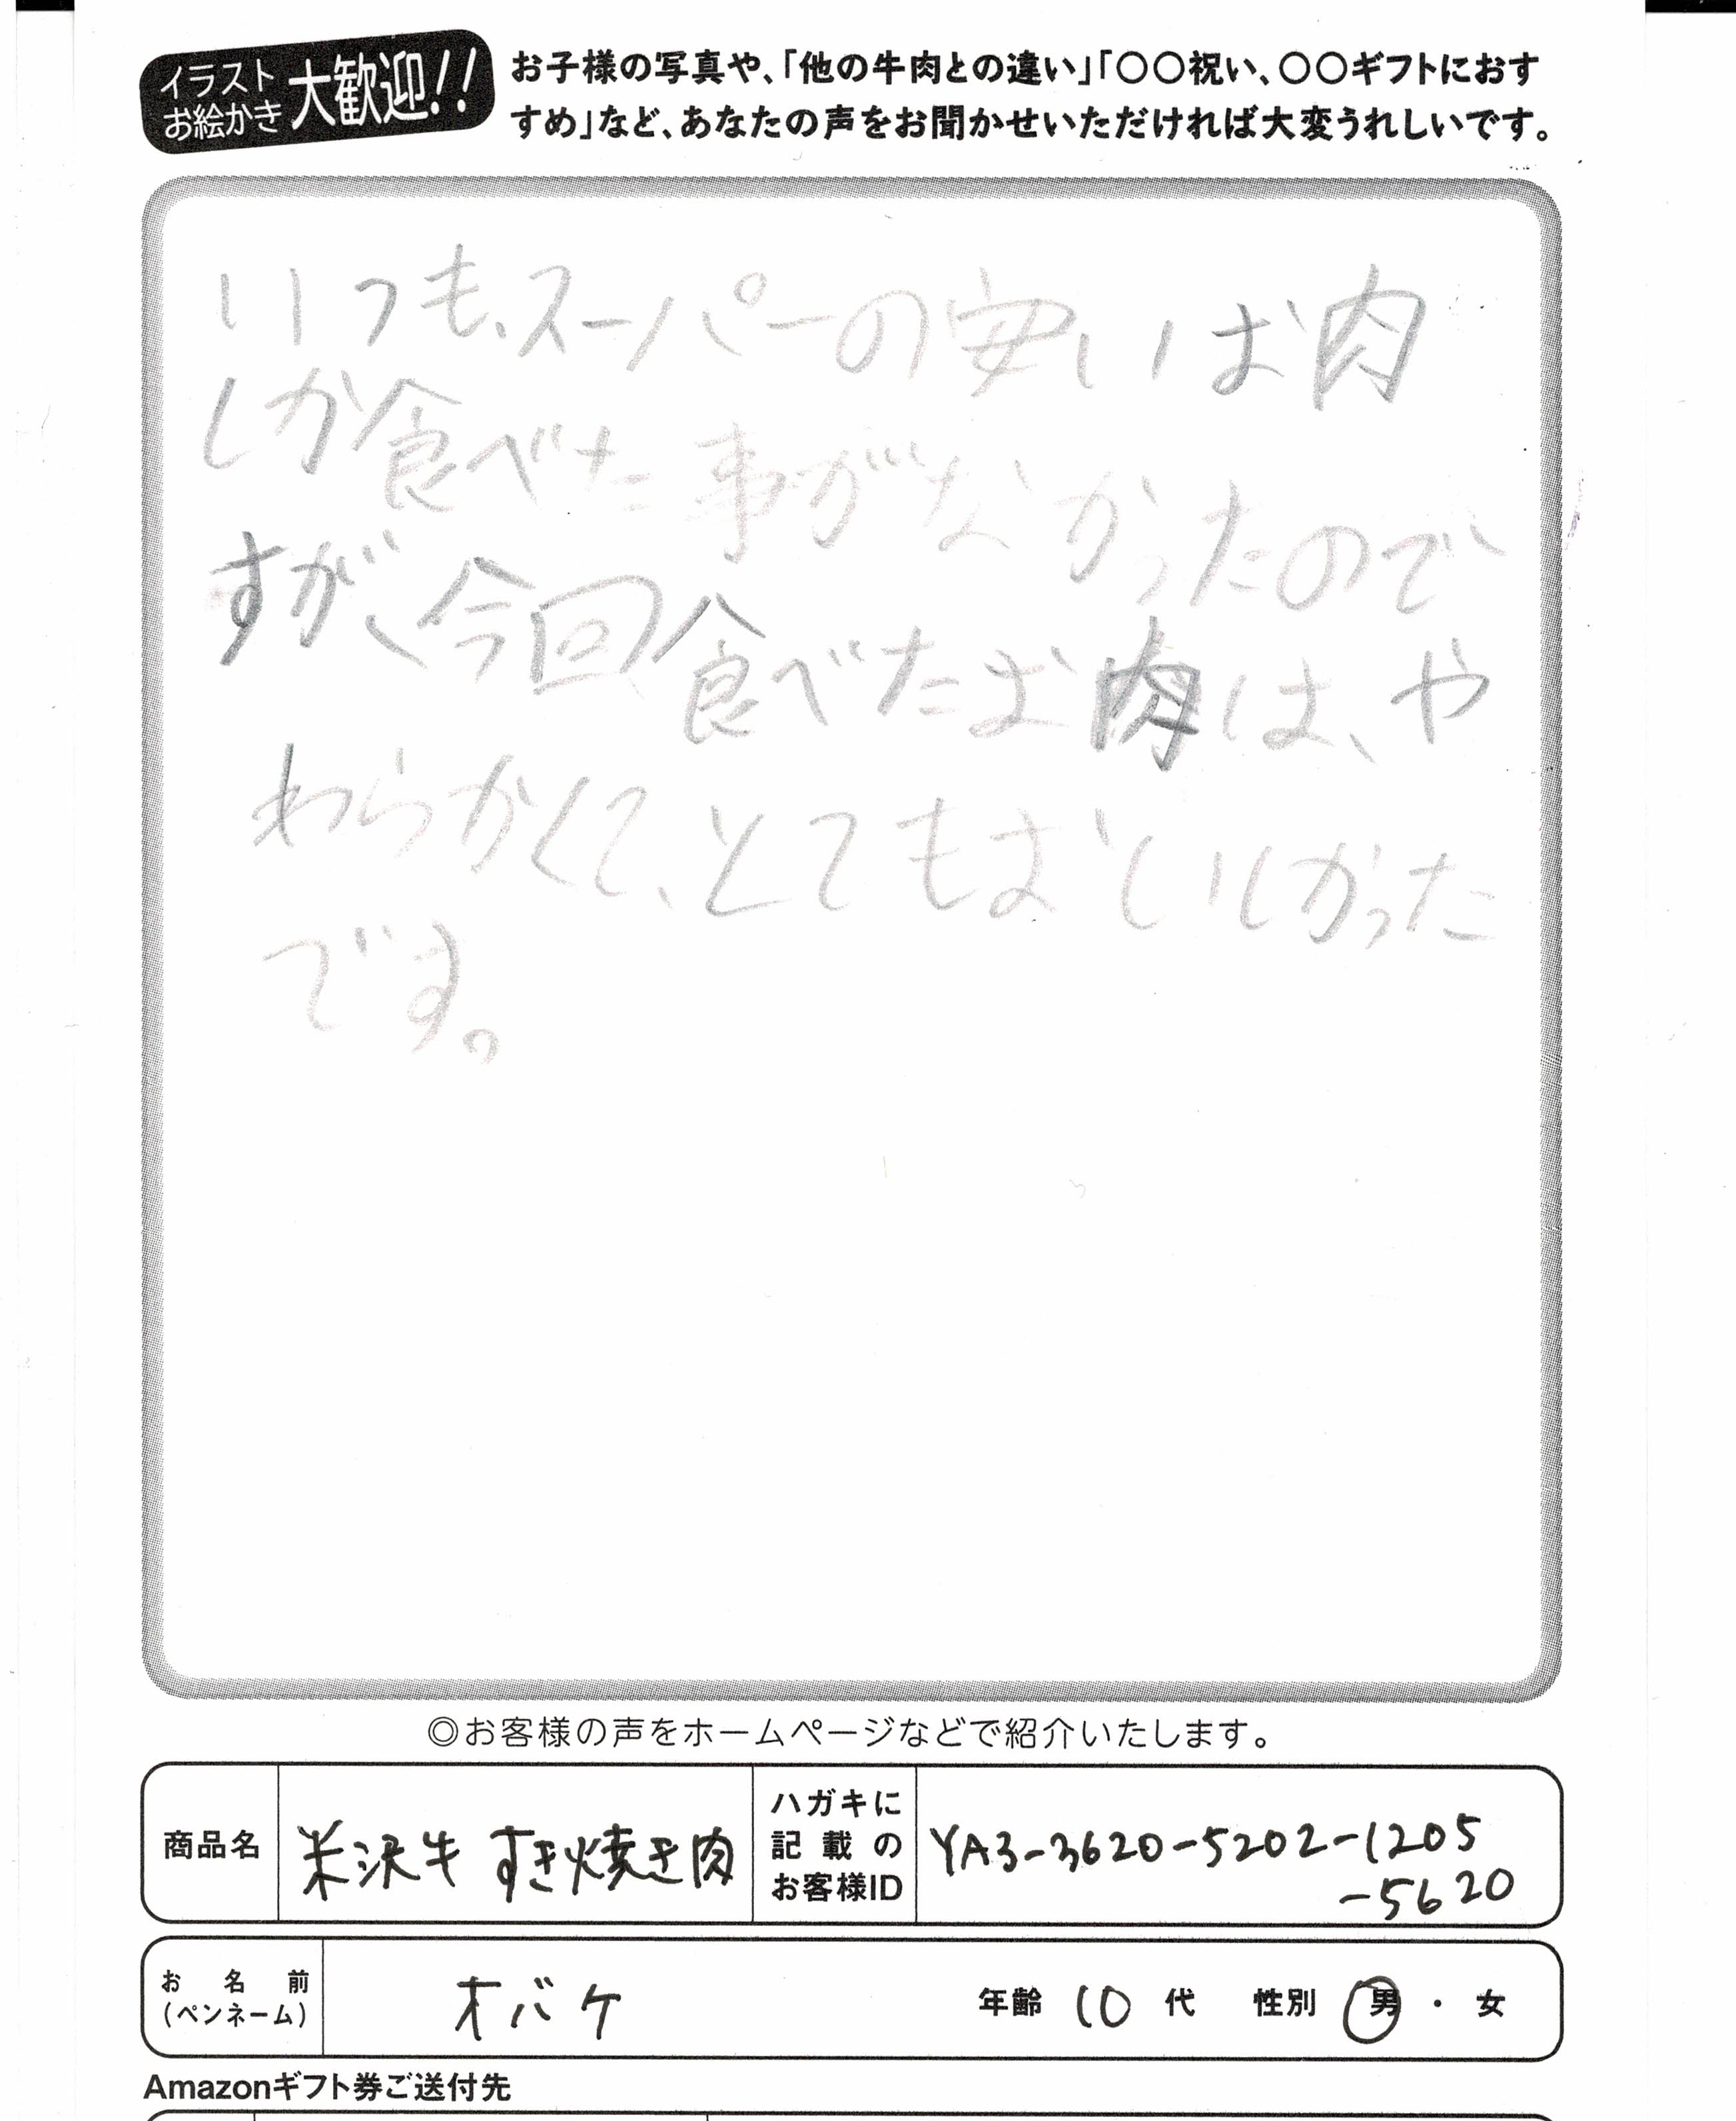 イラスト
お絵かき
大歓迎!!
お子様の写真や、「他の牛肉との違い」「〇〇祝い、〇〇ギフトにおす
すめ」など、あなたの声をお聞かせいただければ大変うれしいです。
いつも、スーパーの安いお肉
しか食べた事がなかったので
すが、今回食べたお肉は、や
わらかくて、とてもおいしかった
です。
◎お客様の声をホームページなどで紹介いたします。
商品名
米沢牛 すき焼き肉
ハガキに
記載の
お客様ID
YA3-3620-5202-1205
-5620
お名前
(ペンネーム)
オバケ
年齢 10 代 性別 男・女
Amazonギフト券ご送付先